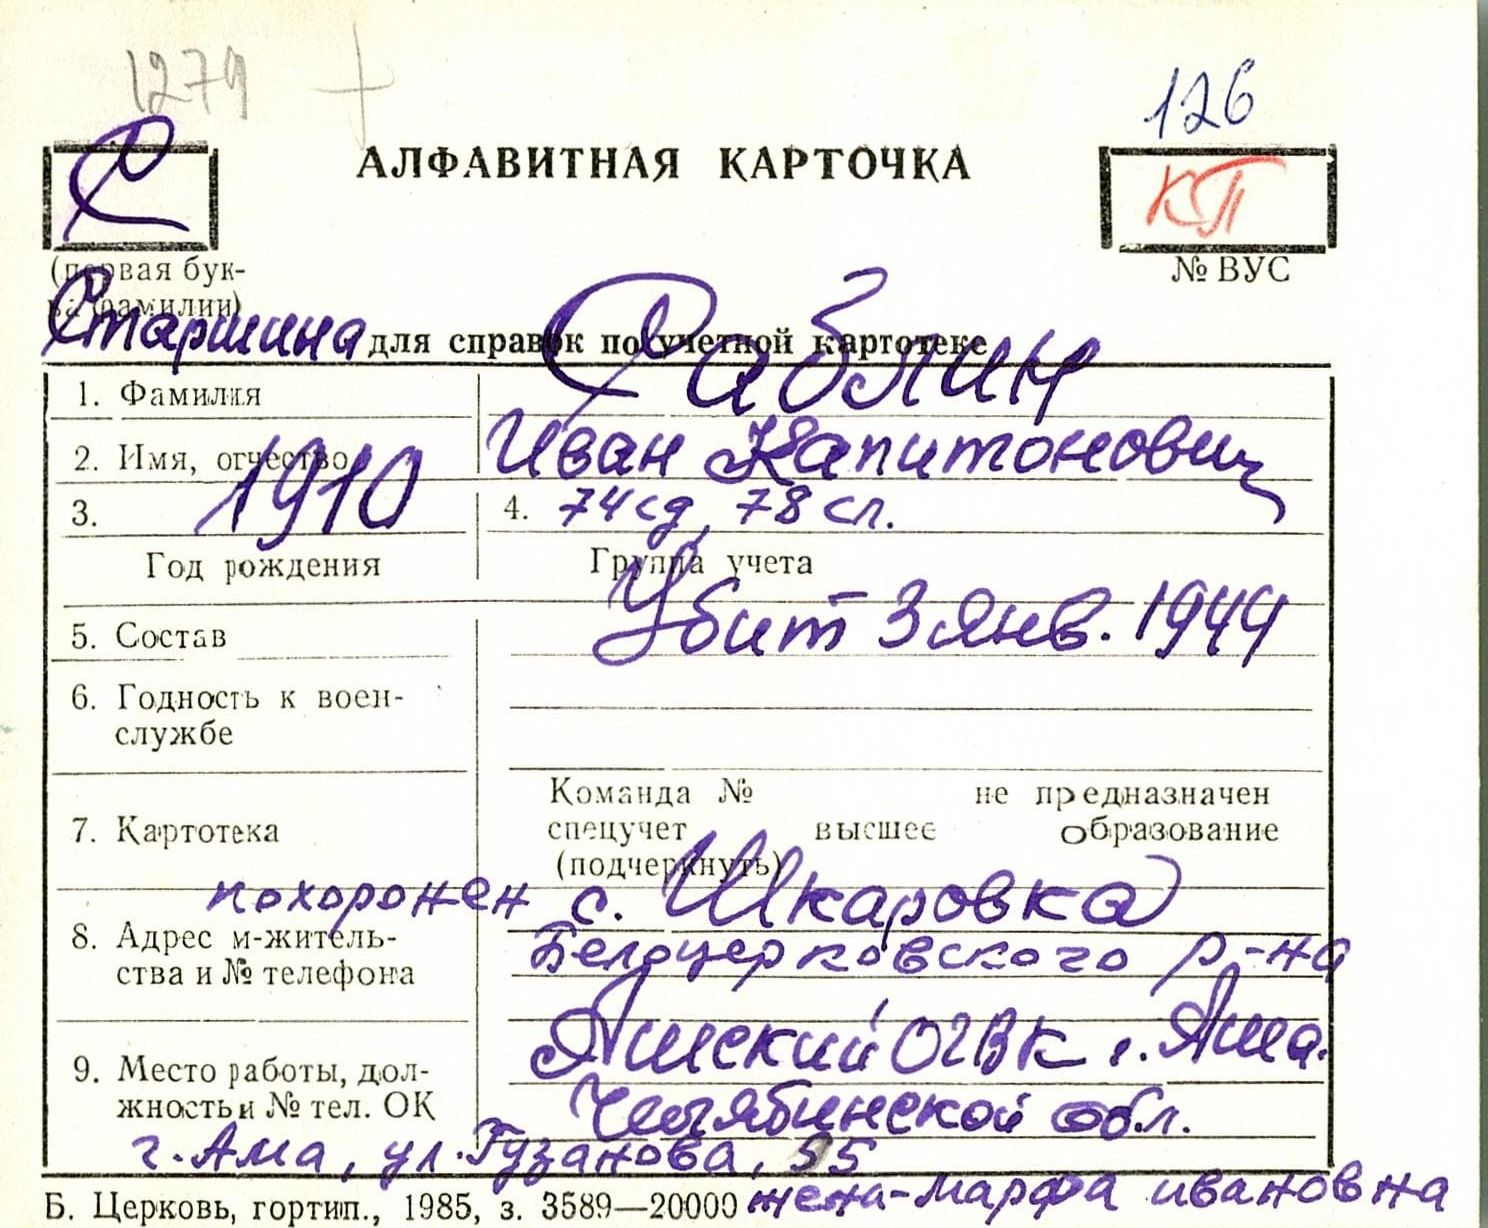 1279
126
С
АЛФАВИТНАЯ КАРТОЧКА
КП
(первая бук-
ва фамилии)
№ ВУС
Старшина
для справок по учетной картотеке
1. Фамилия
Саблин
2. Имя, отчество
Иван Капитонович
3. 1910
4. 74 сд, 78 сп.
Год рождения
Группа учета
Убит 3 янв. 1944
5. Состав
6. Годность к воен-
службе
Команда № не предназначен
7. Картотека
спецучет высшее образование
(подчеркнуть)
похоронен с. Шкаровка
8. Адрес м-житель-
ства и № телефона
Белоцерковского р-на
Ашский ОГВК г. Аша.
9. Место работы, дол-
жность и № тел. ОК
Челябинской обл.
г. Аша, ул. Гузанова, 55
Б. Церковь, гортип., 1985, з. 3589—20000
жена-Марфа Ивановна